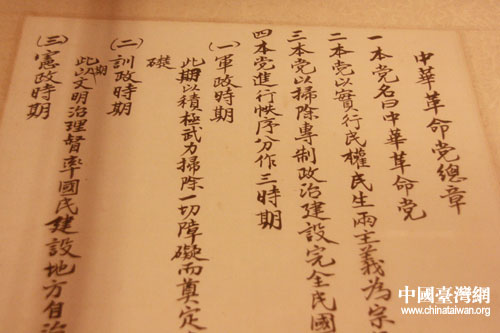 中華革命党總章
一本党名曰中華革命党
二本党以實行民權民生兩主義為宗
三本党以掃除專制政治建設完全民國
四本党進行秩序分作三時期
(一)軍政時期
此期以積極武力掃除一切障礙而奠定
礎
(二)訓政時期
此期以文明治理督率國民建設地方自治
(三)憲政時期
中國臺灣網
www.chinataiwan.org